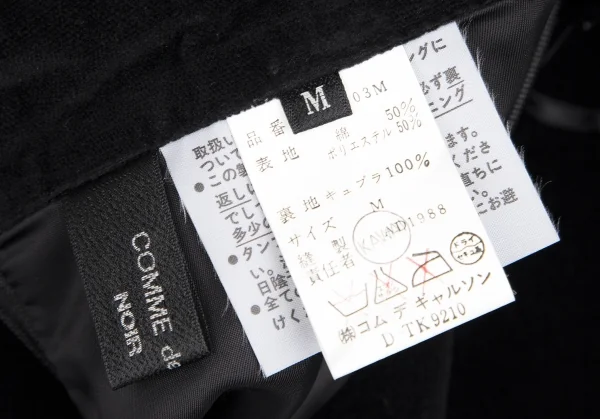 M
03M
品番
表地 綿 50%
ポリエステル 50%
裏地 キュプラ 100%
サイズ M
縫製
責任者
AD1988
ドライ
セキユ系
㈱コム デ ギャルソン
D TK9210
COMME de
NOIR
取扱い
ついて
●この製
返しい
でし
多少
●タン
い。
日陰
●全て
けく
ングに
必ず裏
ニング
ます。
くださ
直ちに
にお避